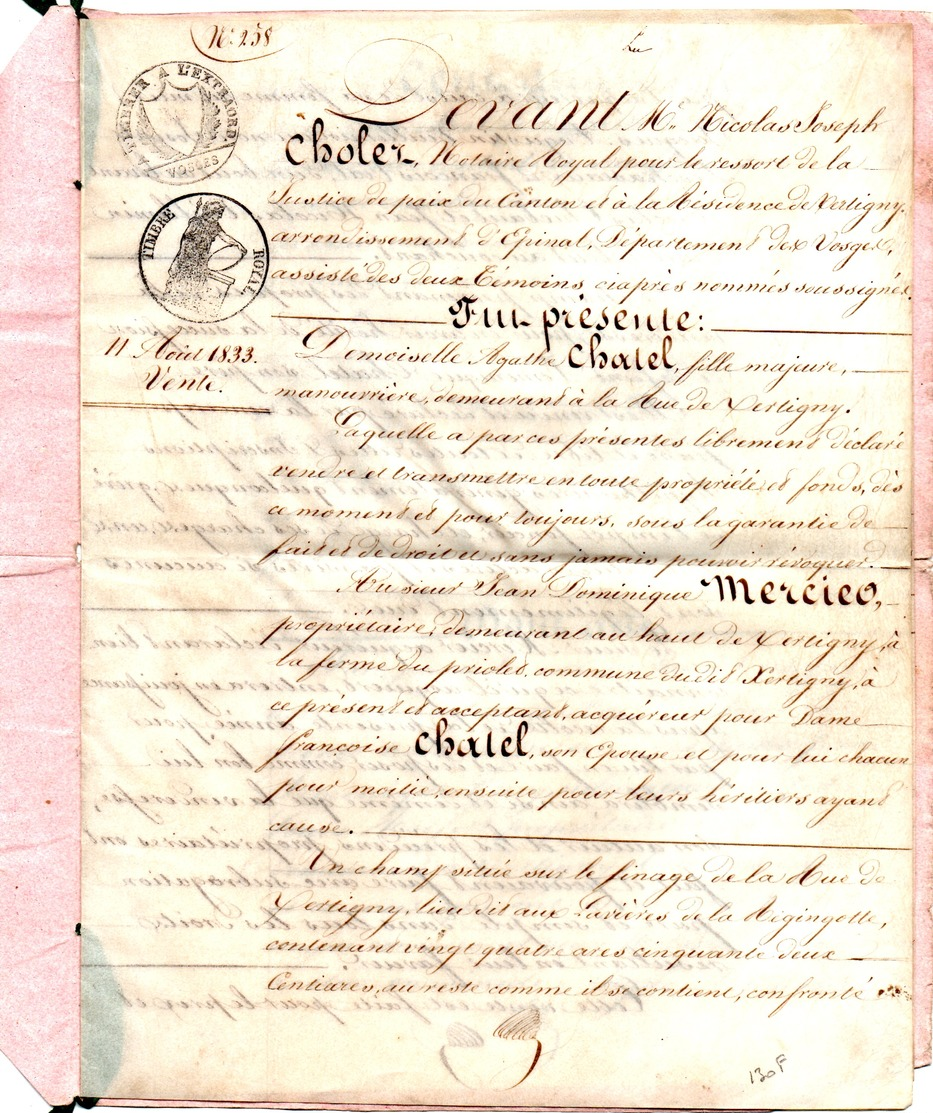 N.° 258
Lu
A TIMBRER A L'EXTRAORD.
VOSGES
TIMBRE ROYAL
11 Août 1833.
Vente.
Devant M.e Nicolas Joseph
Cholez, Notaire Royal pour le ressort de la
Justice de paix du Canton et à la Résidence de Xertigny,
arrondissement d'Epinal, Département des Vosges,
assisté des deux Témoins ciaprès nommés soussignés.
Fut présente:
Demoiselle Agathe Chatel, fille majeure,
manourrière, demeurant à la Rue de Xertigny.
Laquelle a par ces présentes librement déclaré
vendre et transmettre en toute propriété et fonds, dès
ce moment et pour toujours, sous la garantie de
fait et de droit et sans jamais pouvoir révoquer.
Au sieur Jean Dominique Mercier,
propriétaire, demeurant au haut de Xertigny, à
la ferme du priolet, commune dudit Xertigny, à
ce présent et acceptant, acquéreur pour Dame
françoise Chatel, son Epouse et pour lui chacun
pour moitié, ensuite pour leurs héritiers ayant
cause.
Un champ situé sur le finage de la Rue de
Xertigny, lieu dit aux Lavières de la Régingotte,
contenant vingt quatre ares cinquante deux
Centiares, au reste comme il se contient, confronté
130 F